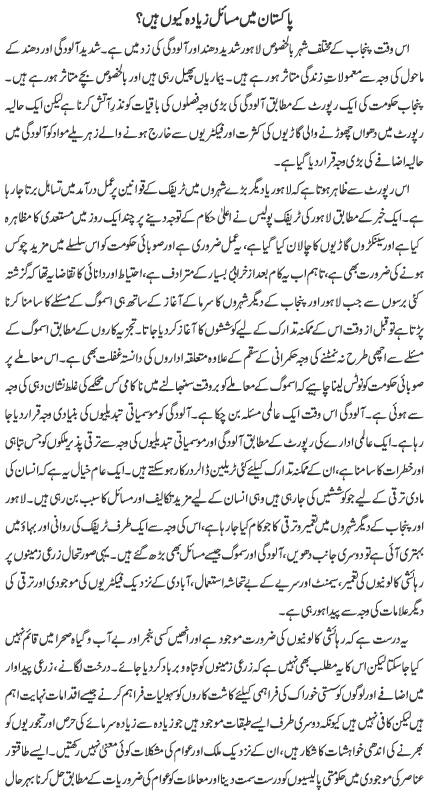 پاکستان میں مسائل زیادہ کیوں ہیں؟
اس وقت پنجاب کے مختلف شہر بالخصوص لاہور شدید دھند اور آلودگی کی زد میں ہے۔ شدید آلودگی اور دھند کے
ماحول کی وجہ سے معمولاتِ زندگی متاثر ہو رہے ہیں۔ بیماریاں پھیل رہی ہیں اور بالخصوص بچے متاثر ہو رہے ہیں۔
پنجاب حکومت کی ایک رپورٹ کے مطابق آلودگی کی بڑی وجہ فصلوں کی باقیات کو نذرِ آتش کرنا ہے لیکن ایک حالیہ
رپورٹ میں دھواں چھوڑنے والی گاڑیوں کی کثرت اور فیکٹریوں سے خارج ہونے والے زہریلے مواد کو آلودگی میں
حالیہ اضافے کی بڑی وجہ قرار دیا گیا ہے۔
اس رپورٹ سے ظاہر ہوتا ہے کہ لاہور یا دیگر بڑے شہروں میں ٹریفک کے قوانین پر عمل درآمد میں تساہل برتا جا رہا
ہے۔ ایک خبر کے مطابق لاہور کی ٹریفک پولیس نے اعلیٰ حکام کے توجہ دینے پر چند ایک روز میں مستعدی کا مظاہرہ
کیا ہے اور سینکڑوں گاڑیوں کا چالان کیا گیا ہے، یہ عمل ضروری ہے اور صوبائی حکومت کو اس سلسلے میں مزید چوکس
ہونے کی ضرورت بھی ہے، تاہم اب یہ کام بعد از خرابیٔ بسیار کے مترادف ہے، احتیاط اور دانائی کا تقاضا یہ تھا کہ گزشتہ
کئی برسوں سے جب لاہور اور پنجاب کے دیگر شہروں کا سرما کے آغاز کے ساتھ ہی اسموگ کے مسئلے کا سامنا کرنا
پڑتا ہے تو قبل از وقت اس کے ممکنہ تدارک کے لیے کوششوں کا آغاز کر دیا جاتا۔ تجزیہ کاروں کے مطابق اسموگ کے
مسئلے سے اچھی طرح نہ نمٹنے کی وجہ حکمرانی کے سقم کے علاوہ متعلقہ اداروں کی دانستہ غفلت بھی ہے۔ اس معاملے پر
صوبائی حکومت کو نوٹس لینا چاہیے کہ اسموگ کے معاملے کو بروقت سنبھالنے میں ناکامی کس محکمے کی غلط نشان دہی کی وجہ
سے ہوئی ہے۔ آلودگی اس وقت ایک عالمی مسئلہ بن چکا ہے۔ آلودگی کو موسمیاتی تبدیلیوں کی بنیادی وجہ قرار دیا جاتا
ہے۔ ایک عالمی ادارے کی رپورٹ کے مطابق آلودگی اور موسمیاتی تبدیلیوں کی وجہ سے ترقی پذیر ملکوں کو جس تباہی
اور خطرات کا سامنا ہے، ان کے ممکنہ تدارک کیلئے کئی ٹریلین ڈالر درکار ہو سکتے ہیں۔ ایک عام خیال یہ ہے کہ انسان کی
مادی ترقی کے لیے جو کوششیں کی جا رہی ہیں وہی انسان کے لیے مزید تکالیف اور مسائل کا سبب بن رہی ہیں۔ لاہور
اور پنجاب کے دیگر شہروں میں تعمیر و ترقی کا جو کام کیا جا رہا ہے، اس کی وجہ سے ایک طرف ٹریفک کی روانی اور بہاؤ میں
بہتری آئی ہے تو دوسری جانب دھویں، آلودگی اور سموگ جیسے مسائل بھی بڑھ گئے ہیں۔ یہی صورتحال زرعی زمینوں پر
رہائشی کالونیوں کی تعمیر، سیمنٹ اور سریے کے بے تحاشہ استعمال، آبادی کے نزدیک فیکٹریوں کی موجودی اور ترقی کی
دیگر علامات کی وجہ سے پیدا ہو رہی ہے۔
یہ درست ہے کہ رہائشی کالونیوں کی ضرورت موجود ہے اور انھیں کسی بنجر اور بے آب و گیاہ صحرا میں قائم نہیں
کیا جا سکتا لیکن اس کا یہ مطلب بھی نہیں ہے کہ زرعی زمینوں کو تباہ و برباد کر دیا جائے۔ درخت لگانے، زرعی پیداوار
میں اضافے اور لوگوں کو سستی خوراک کی فراہمی کیلئے کاشت کاروں کو سہولیات فراہم کرنے جیسے اقدامات نہایت اہم
ہیں لیکن کافی نہیں ہیں کیونکہ دوسری طرف ایسے طبقات موجود ہیں جو زیادہ سے زیادہ سرمائے کی حرص اور تجوریوں کو
بھرنے کی اندھی خواہشات کا شکار ہیں، ان کے نزدیک ملک اور عوام کی مشکلات کوئی معنی نہیں رکھتیں۔ ایسے طاقتور
عناصر کی موجودی میں حکومتی پالیسیوں کو درست سمت دینا اور معاملات کو عوام کی ضروریات کے مطابق حل کرنا بہرحال